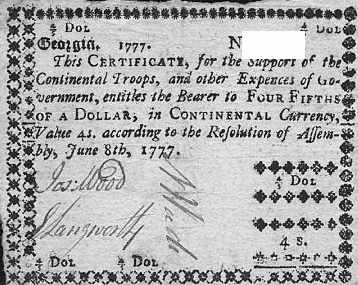 ⅘ Dol ⅘ Dol
Georgia, 1777. N
This CERTIFICATE, for the Support of the
Continental Troops, and other Expences of Go-
vernment, entitles the Bearer to FOUR FIFTHS
OF A DOLLAR, in CONTINENTAL Currency,
Value 4s. according to the Resolution of Assem-
bly, June 8th, 1777.
Jos: Wood
⅘ Dol
4 s.
⅘ Dol ⅘ Dol